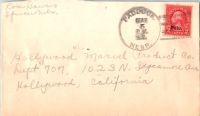 PADDOCK
MAR
5
NEBR.
Nebr.
Hollywood Marvel Product Co.
Dept 707. 1023 N. Sycamore Av
Hollywood, California